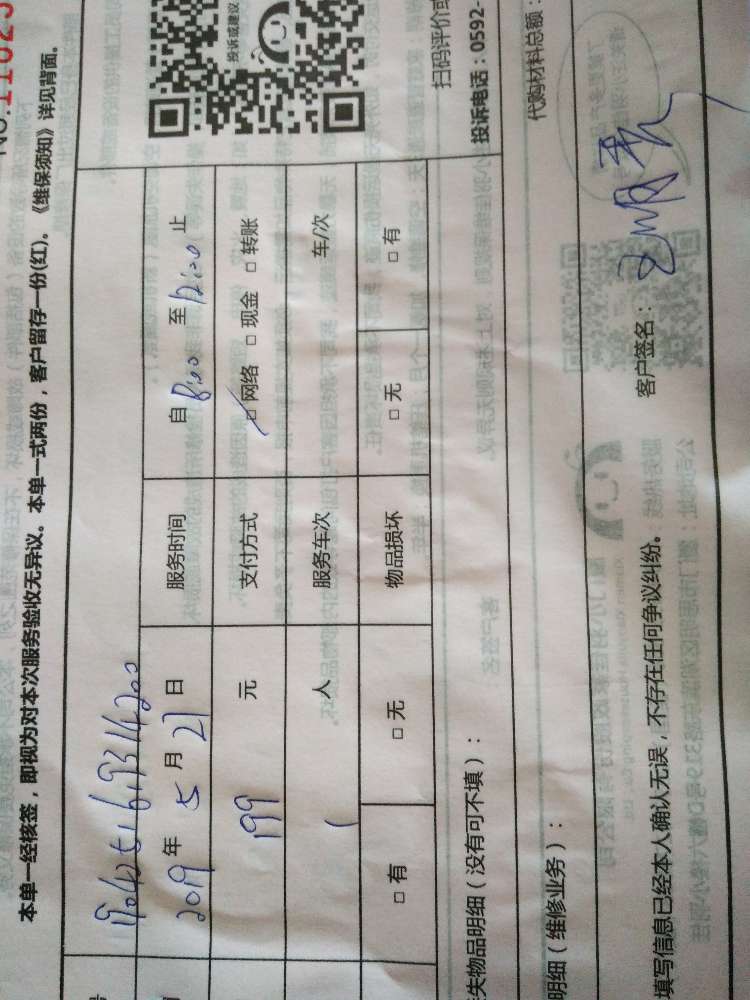 No.11023
本单一经核签，即视为对本次服务验收无异议。本单一式两份，客户留存一份(红)。《维保须知》详见背面。
号
2019 年 5 月 21 日 服务时间 自 8:00 至 12:00 止
199 元 支付方式 ☑ 网络 □ 现金 □ 转账
1 人 服务车次 车/次
□ 有 □ 无 物品损坏 □ 无 □ 有
投诉或建议
扫码评价或
投诉电话：0592-
失物品明细（没有可不填）：
代购材料总额：
明细（维修业务）：
填写信息已经本人确认无误，不存在任何争议纠纷。 客户签名：